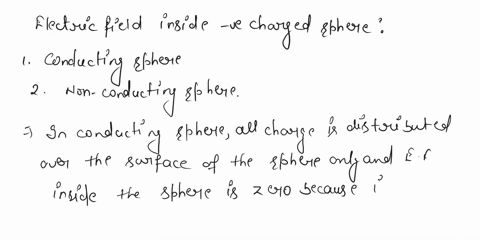 Electric field inside -ve charged sphere :
1. Conducting sphere
2. Non-conducting sphere.
⇒ In conducting sphere, all charge is distributed
over the surface of the sphere only and E.F
inside the sphere is zero because i